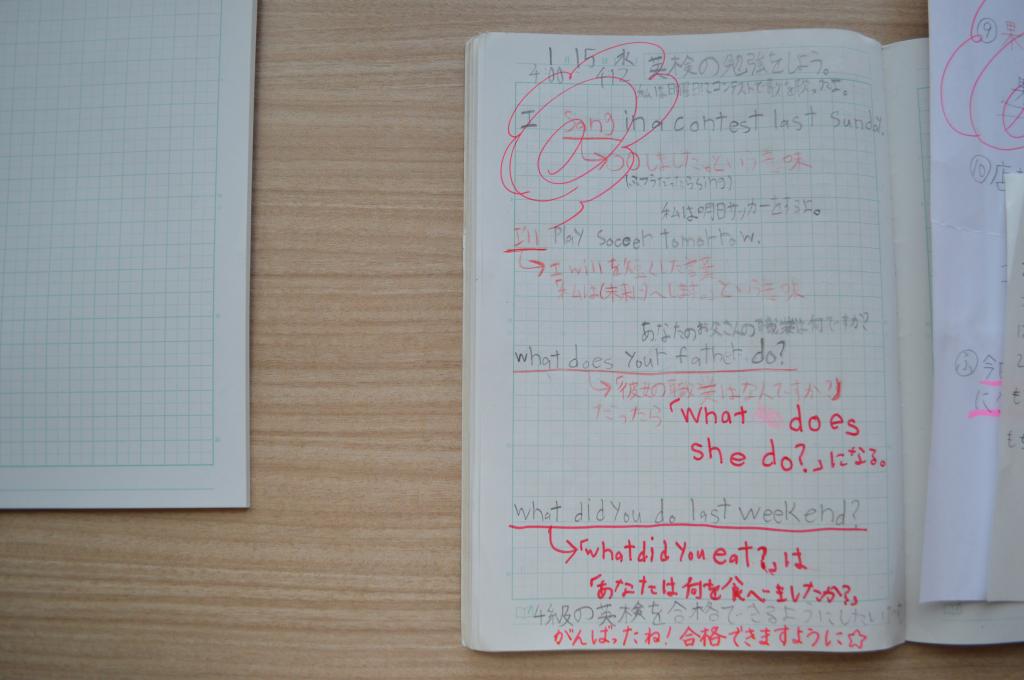 1 15 水 英検の勉強をしよう。
4:00 412
私は日曜日にコンテストで歌を歌ったよ。
I Sang in a contest last Sunday.
つのしました。という意味
(ふつうだったらsing)
私は明日サッカーをするよ。
I'll Play Soccer tomorrow.
I willを短くした言葉
「私は(未来)〜します。」という意味
あなたのお父さんの職業は何ですか?
what does your father do?
「彼女の職業はなんですか?」
だったら「what does
she do?」になる。
what did you do last weekend?
「what did you eat?」は
「あなたは何を食べましたか?」
4級の英検を合格できるようにしたい
がんばったね!合格できますように☆
⑨果
⑩店
今
に